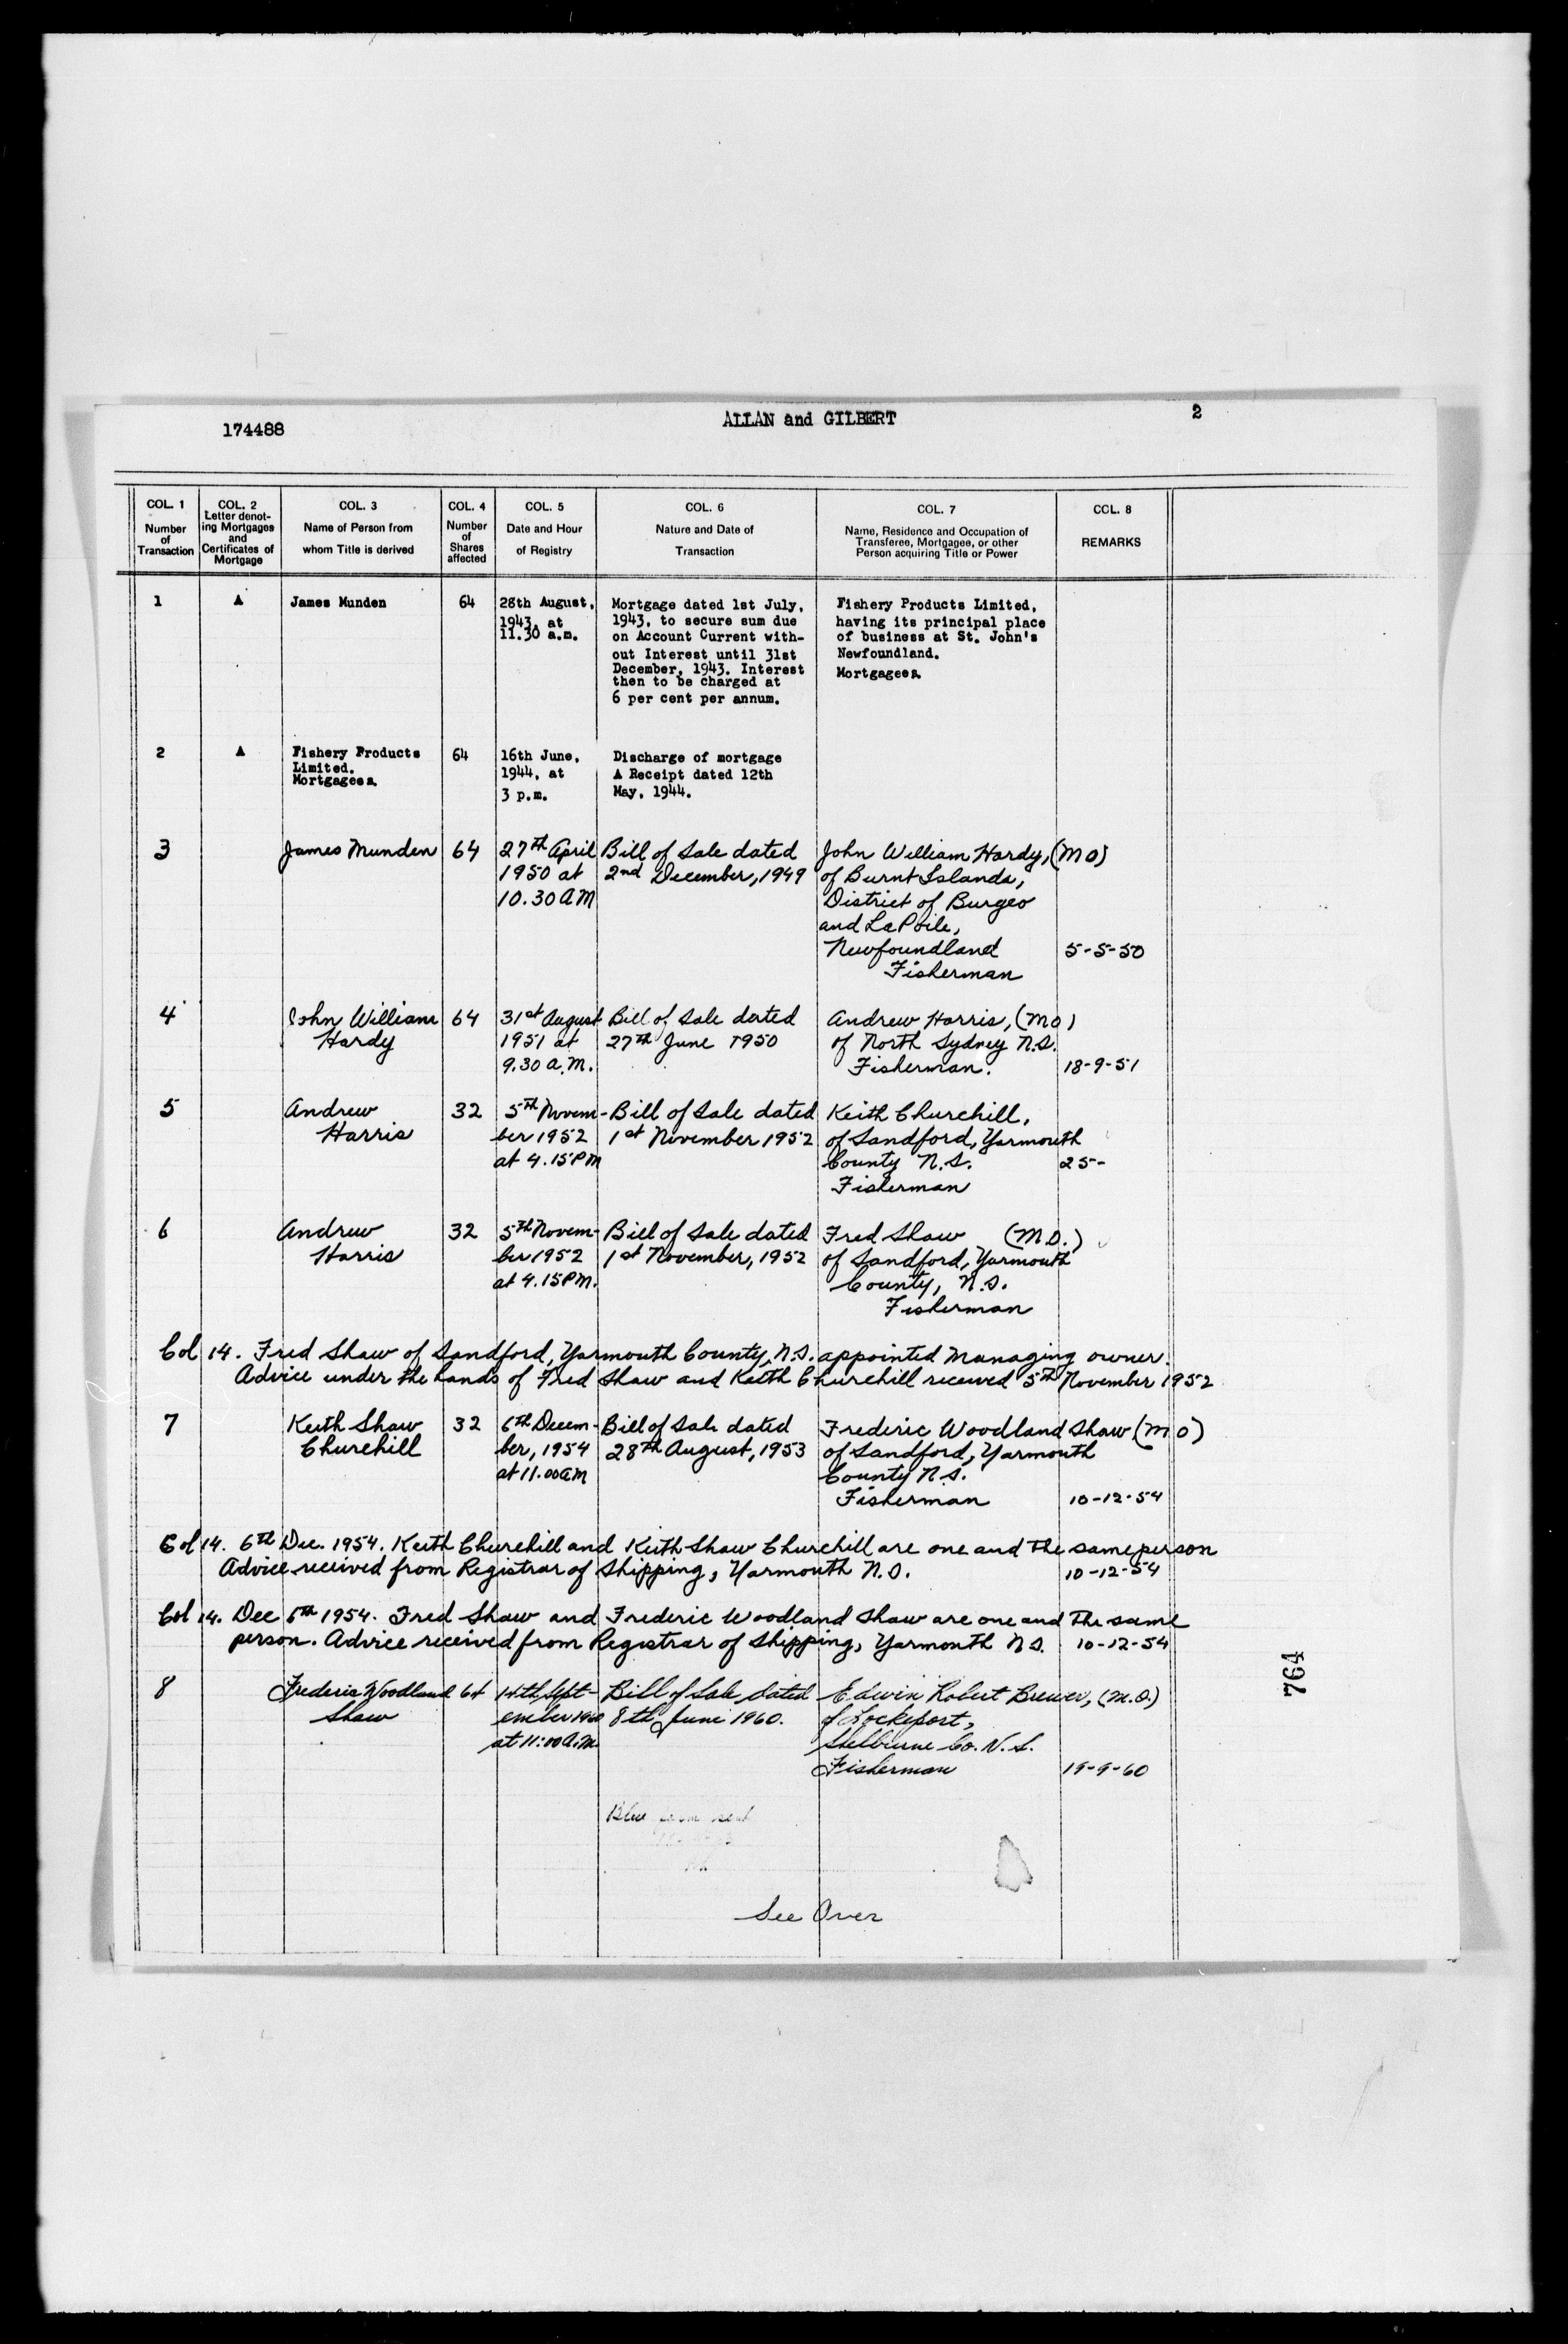 174488
ALLAN and GILBERT
2
COL. 1
Number
of
Transaction
COL. 2
Letter denot-
ing Mortgages
and
Certificates of
Mortgage
COL. 3
Name of Person from
whom Title is derived
COL. 4
Number
of
Shares
affected
COL. 5
Date and Hour
of Registry
COL. 6
Nature and Date of
Transaction
COL. 7
Name, Residence and Occupation of
Transferee, Mortgagee, or other
Person acquiring Title or Power
COL. 8
REMARKS
1
A
James Munden
64
28th August,
1943, at
11.30 a.m.
Mortgage dated 1st July,
1943, to secure sum due
on Account Current with-
out Interest until 31st
December, 1943. Interest
then to be charged at
6 per cent per annum.
Fishery Products Limited,
having its principal place
of business at St. John's
Newfoundland.
Mortgagees.
2
A
Fishery Products
Limited.
Mortgagees.
64
16th June,
1944, at
3 p.m.
Discharge of mortgage
A Receipt dated 12th
May, 1944.
3
James Munden
64
27th April
1950 at
10.30 AM
Bill of Sale dated
2nd December, 1949
John William Hardy, (MO)
of Burnt Islands,
District of Burgeo
and LaPoile,
Newfoundland
Fisherman
5-5-50
4
John William
Hardy
64
31st August
1951 at
9.30 a.m.
Bill of Sale dated
27th June 1950
Andrew Harris, (MO)
of North Sydney N.S.
Fisherman.
18-9-51
5
Andrew
Harris
32
5th Novem-
ber 1952
at 4.15 PM
Bill of Sale dated
1st November 1952
Keith Churchill,
of Sandford, Yarmouth
County N.S.
Fisherman
25-
6
Andrew
Harris
32
5th Novem-
ber 1952
at 4.15 PM.
Bill of Sale dated
1st November, 1952
Fred Shaw (M.O.)
of Sandford, Yarmouth
County, N.S.
Fisherman
Col 14. Fred Shaw of Sandford, Yarmouth County, N.S. appointed Managing owner.
Advice under the hands of Fred Shaw and Keith Churchill received 5th November 1952
7
Keith Shaw
Churchill
32
6th Decem-
ber, 1954
at 11.00 AM
Bill of Sale dated
28th August, 1953
Frederic Woodland Shaw (MO)
of Sandford, Yarmouth
County N.S.
Fisherman
10-12-54
Col 14. 6th Dec. 1954. Keith Churchill and Keith Shaw Churchill are one and the same person
Advice received from Registrar of Shipping, Yarmouth N.S.
10-12-54
Col 14. Dec 6th 1954. Fred Shaw and Frederic Woodland Shaw are one and the same
person. Advice received from Registrar of Shipping, Yarmouth N.S. 10-12-54
8
Frederic Woodland
Shaw
64
14th Sept-
ember 1960
at 11:00 A.M.
Bill of Sale dated
8th June 1960.
Edwin Robert Brewer, (M.O.)
of Lockeport,
Shelburne Co. N.S.
Fisherman
19-9-60
Blue sent
See Over
764